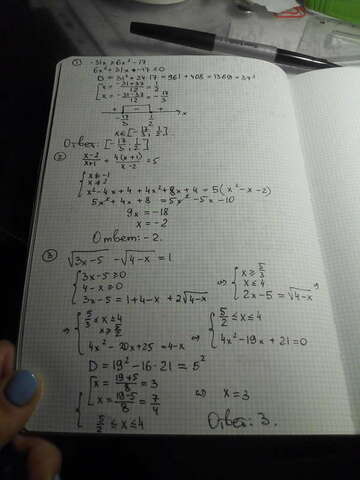 ① -31x ≥ 6x² - 17
6x² + 31x + -17 ≤ 0
D = 31² + 24·17 = 961 + 408 = 1369 = 37²
[ x = (-31+37)/12 = 1/2
[ x = (-31-37)/12 = -17/3
+ - +
-17/3 1/2 x
x ∈ [-17/3; 1/2]
Ответ: [-17/3; 1/2]
② (x-2)/(x+1) + 4(x+1)/(x-2) = 5
{ x ≠ -1
x ≠ 2
x² - 4x + 4 + 4x² + 8x + 4 = 5(x² - x - 2)
5x² + 4x + 8 = 5x² - 5x - 10
9x = -18
x = -2
Ответ: -2.
③ √(3x-5) - √(4-x) = 1
{ 3x-5 ≥ 0
4-x ≥ 0
3x-5 = 1+4-x + 2√(4-x)
⇒ { x ≥ 5/3
x ≤ 4
2x-5 = √(4-x) ⇒
⇒ { 5/3 ≤ x ≤ 4
x ≥ 5/2
4x² - 20x + 25 = 4-x
⇒ { 5/2 ≤ x ≤ 4
4x² - 19x + 21 = 0
D = 19² - 16·21 = 5²
{ [ x = (19+5)/8 = 3
[ x = (19-5)/8 = 7/4
5/2 ≤ x ≤ 4
⇔ x = 3
Ответ: 3.